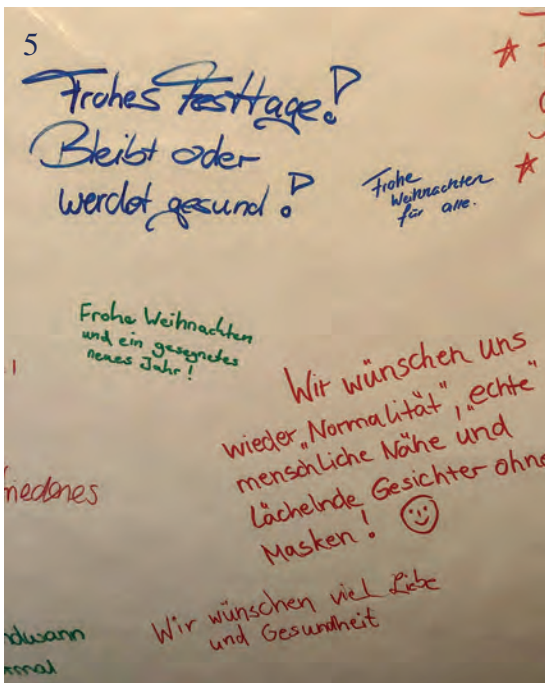 5
Frohes Festtage!
Bleibt oder
werdet gesund!
Frohe
Weihnachten
für alle.
Frohe Weihnachten
und ein gesegnetes
neues Jahr!
Wir wünschen uns
wieder „Normalität", „echte"
menschliche Nähe und
lächelnde Gesichter ohne
Masken!
Wir wünschen viel Liebe
und Gesundheit